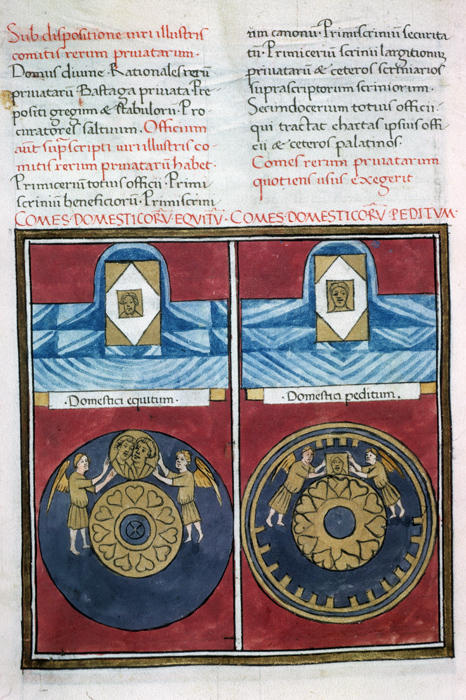 Sub dispositione uiri illustris
comitis rerum priuatarum.
Domus diuine. Rationales rerū
priuatarū Bastaga priuata Pre-
positi gregum & stabulorū. Pro
curatores saltuum. Officium
aūt supscripti uiri illustris co-
mitis rerum priuatarū habet.
Primicerium totius officii. Primi
scrinii beneficiorū. Primiscrini
um canonū. Primiscriniū securita
tū. Primiceriū scrinii largitionū
priuatarū & ceteros scriniarios
suprascriptorum scriniorum.
Secundocerium totius officii.
qui tractat chartas ipsius offi
cii & ceteros palatinos.
Comes rerum priuatarum
quotiens usus exegerit
COMES. DOMESTICORV̄. EQVITV̄. COMES. DOMESTICORV̄. PEDITVM.
.Domestici equitum.
.Domestici peditum.